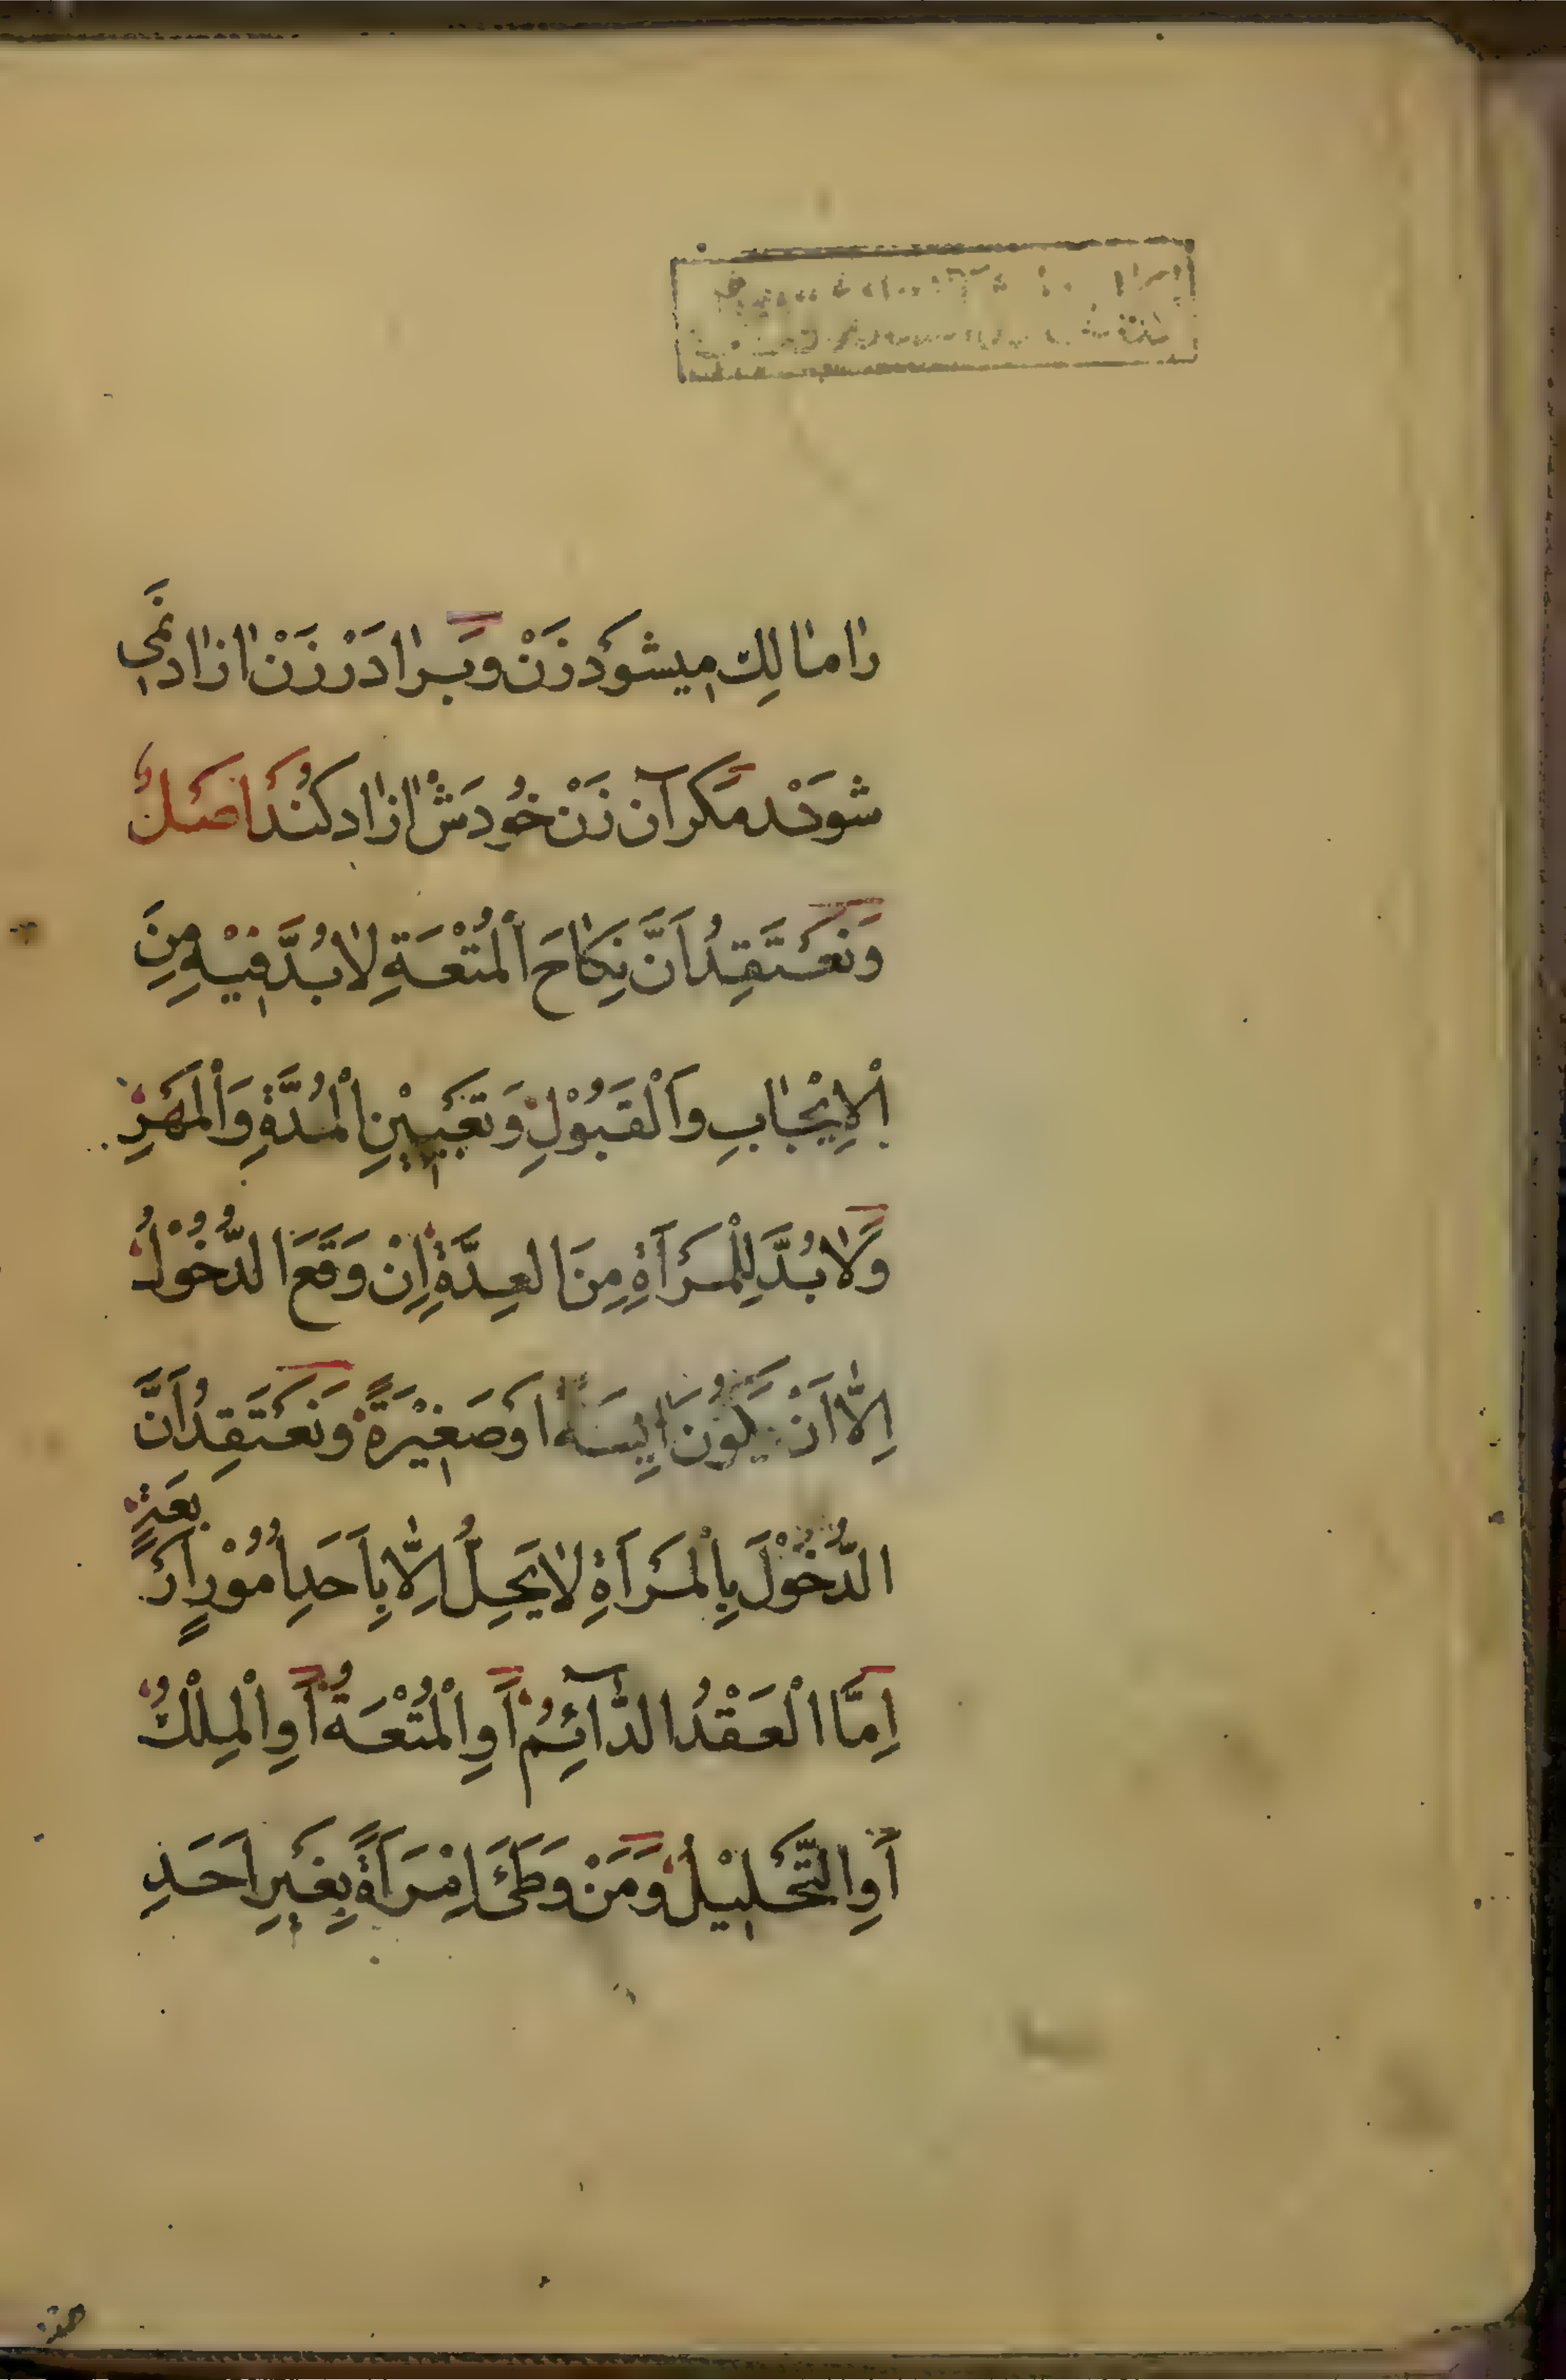 رَا مَا لِك مِيشَوَد زَنْ وَبَرَادَرْ زَنْ ازَاد نَمِي
شَوَنْد مَكَر آن زَنْ خُودَشْ ازَاد كُنَد اَصْلٌ
وَنَعْتَقِدُ اَنَّ نِكَاحَ الْمُتْعَةِ لَابُدَّ فِيْهِ مِنَ
الْاِيْجَابِ وَالْقَبُوْلِ وَتَعْيِيْنِ الْمُدَّةِ وَالْمَهْرِ
وَلَابُدَّ لِلْمَرْاَةِ مِنَ العِدَّةِ اِنْ وَقَعَ الدُّخُوْلُ
اِلَّا اَنْ يَكُوْنَ ايِسَةً اَوْ صَغِيْرَةً وَنَعْتَقِدُ اَنَّ
الدُّخُوْلَ بِالْمَرْاَةِ لَا يَحِلُّ اِلَّا بِاَحَدِ اُمُوْرٍ اَرْبَعَةٍ
اِمَّا الْعَقْدُ الدَّآئِمُ اَوِ الْمُتْعَةُ اَوِ الْمِلْكُ
اَوِ التَّحْلِيْلُ وَمَنْ وَطَئَ اِمْرَاَةً بِغَيْرِ اَحَدِ